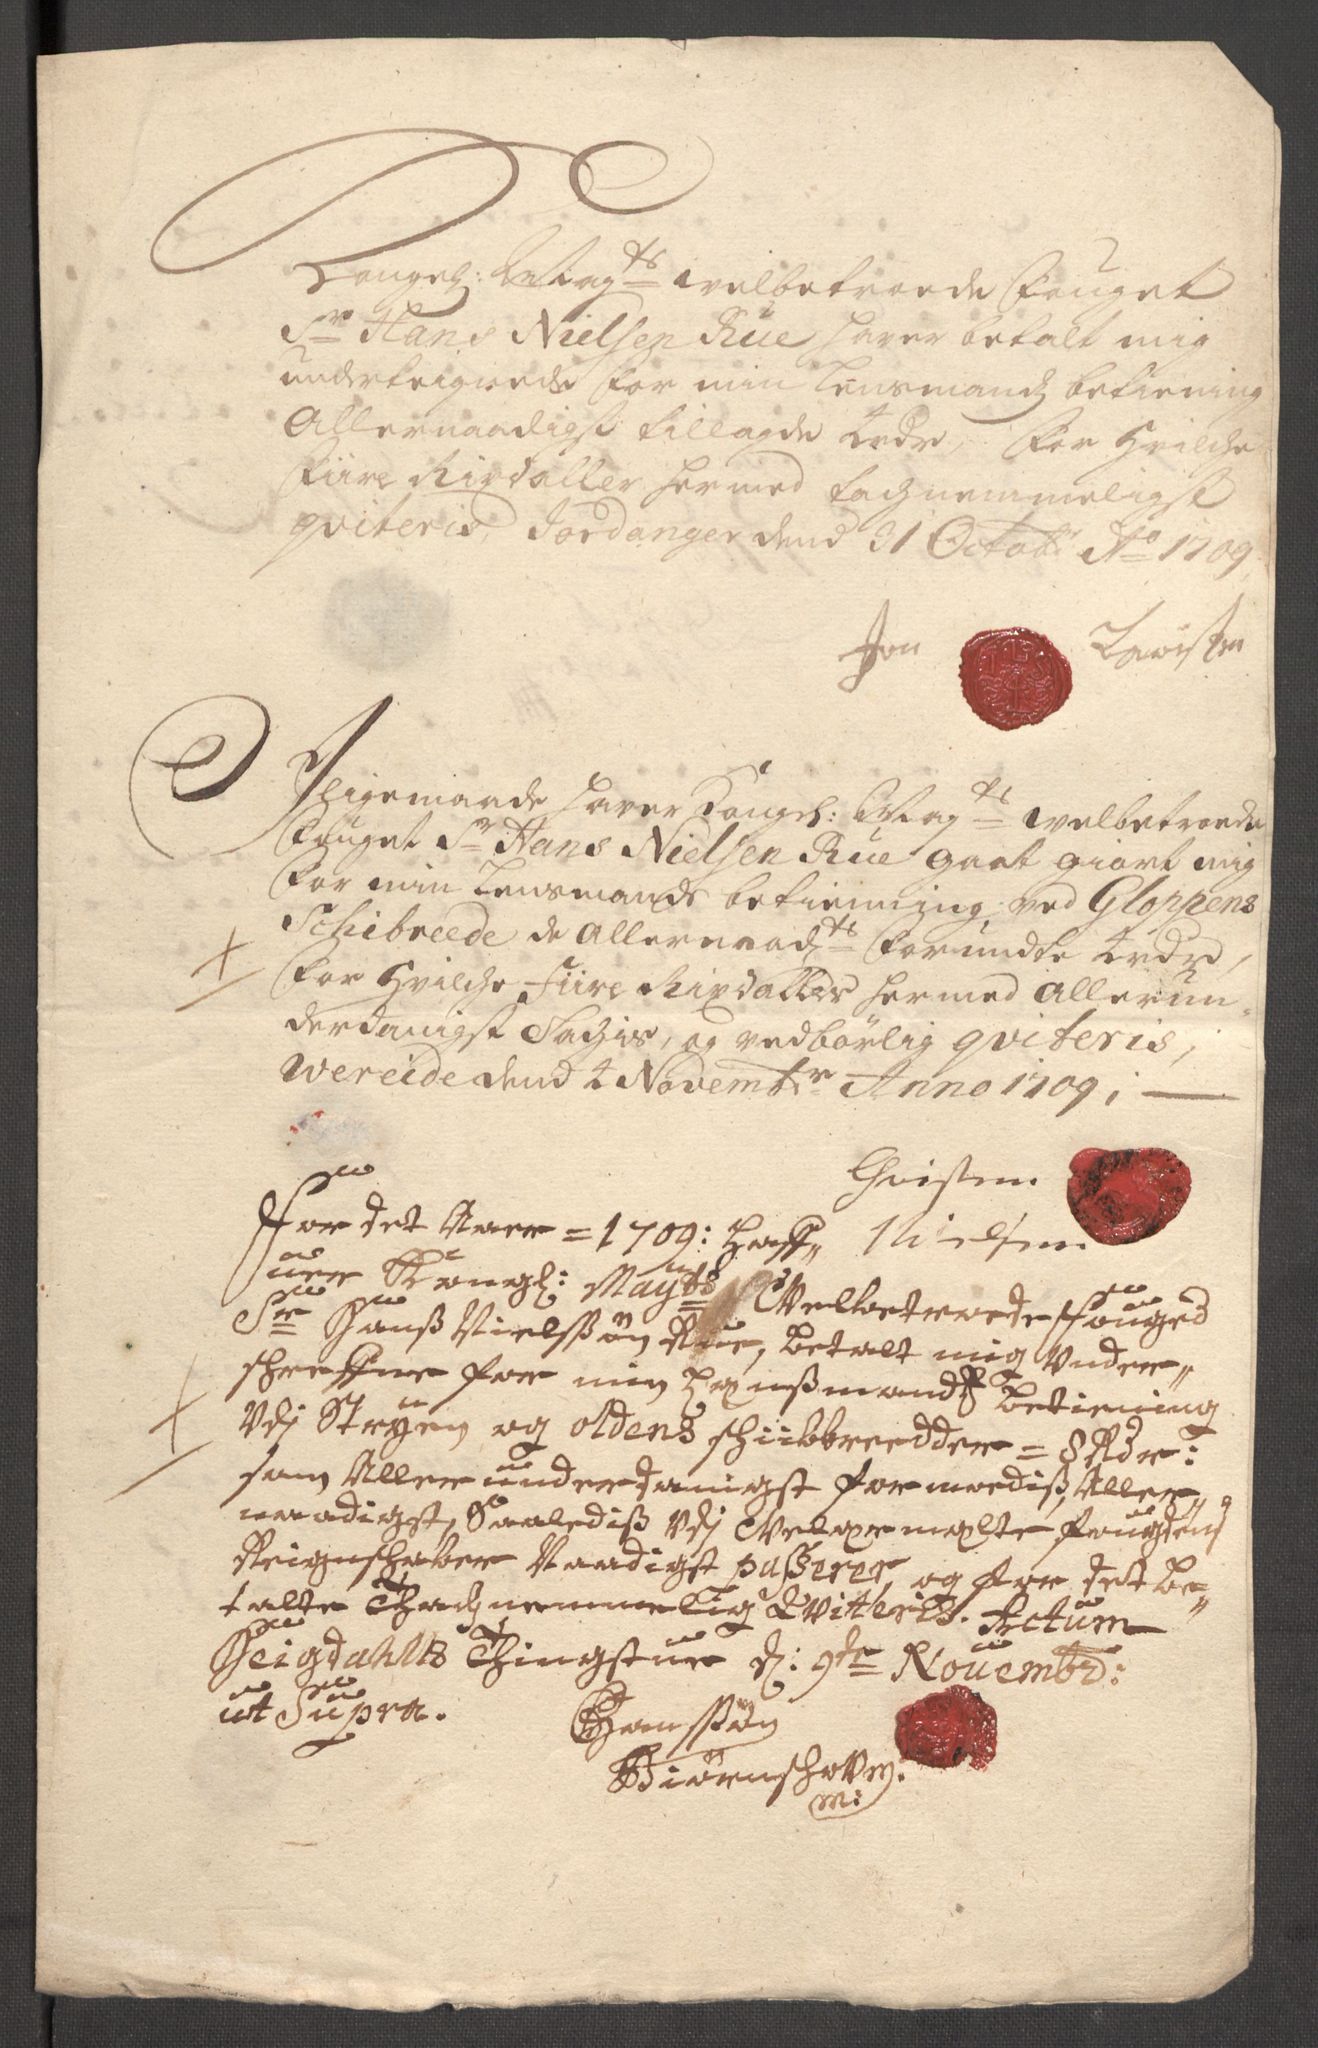 Kongel: Mayts welbetroede Fouget
Sr Hans Nielsen Rue hafver betalt mig
underteignede for min Lensmands betiening
Allernaadigst tillagde 4 rdr, for hvilche
Fiire Rixdaller hermed tachnemmeligst
qviteris, Jordanger dend 31 Octobr Ao 1709
Jon Larisen
Iligemaade hafver Kongel: Mayts welbetroede
Fouget Sr Hans Nielsen Rue gaat giort mig
for min Lensmands betienning ved Gloppens
Schibreede de Allernaadts forundte 4 rdr,
for hvilche Fiire Rixdaller hermed Allerun-
derdanigst Tachis, og vedbörlig qviteris,
Wereide dend 4 Novembr Anno 1709;
Christen
Nielsen
For det Aaer = 1709: haff„
uer Kongl: Mayts Velbetroede Fouged
Sr Hanß Nielssøn Rue, betalt mig Vnder„
schreffne for min Lenßmands betiening
Vdj Stryen og oldens schiibbreedder = 8 Rdr:
som Aller underdanigst formodiß, Aller„
naadigst, Saalediß Vdj Velbemelte fougdens
Reignschaber Naadigst passerer, og for det be„
talte Thachnemmelig Qvitteris. Actum
Heigdahls Thingstue d: 9de Nouembr:
ut Supra.
Hanssøn
Biørnschov
m: